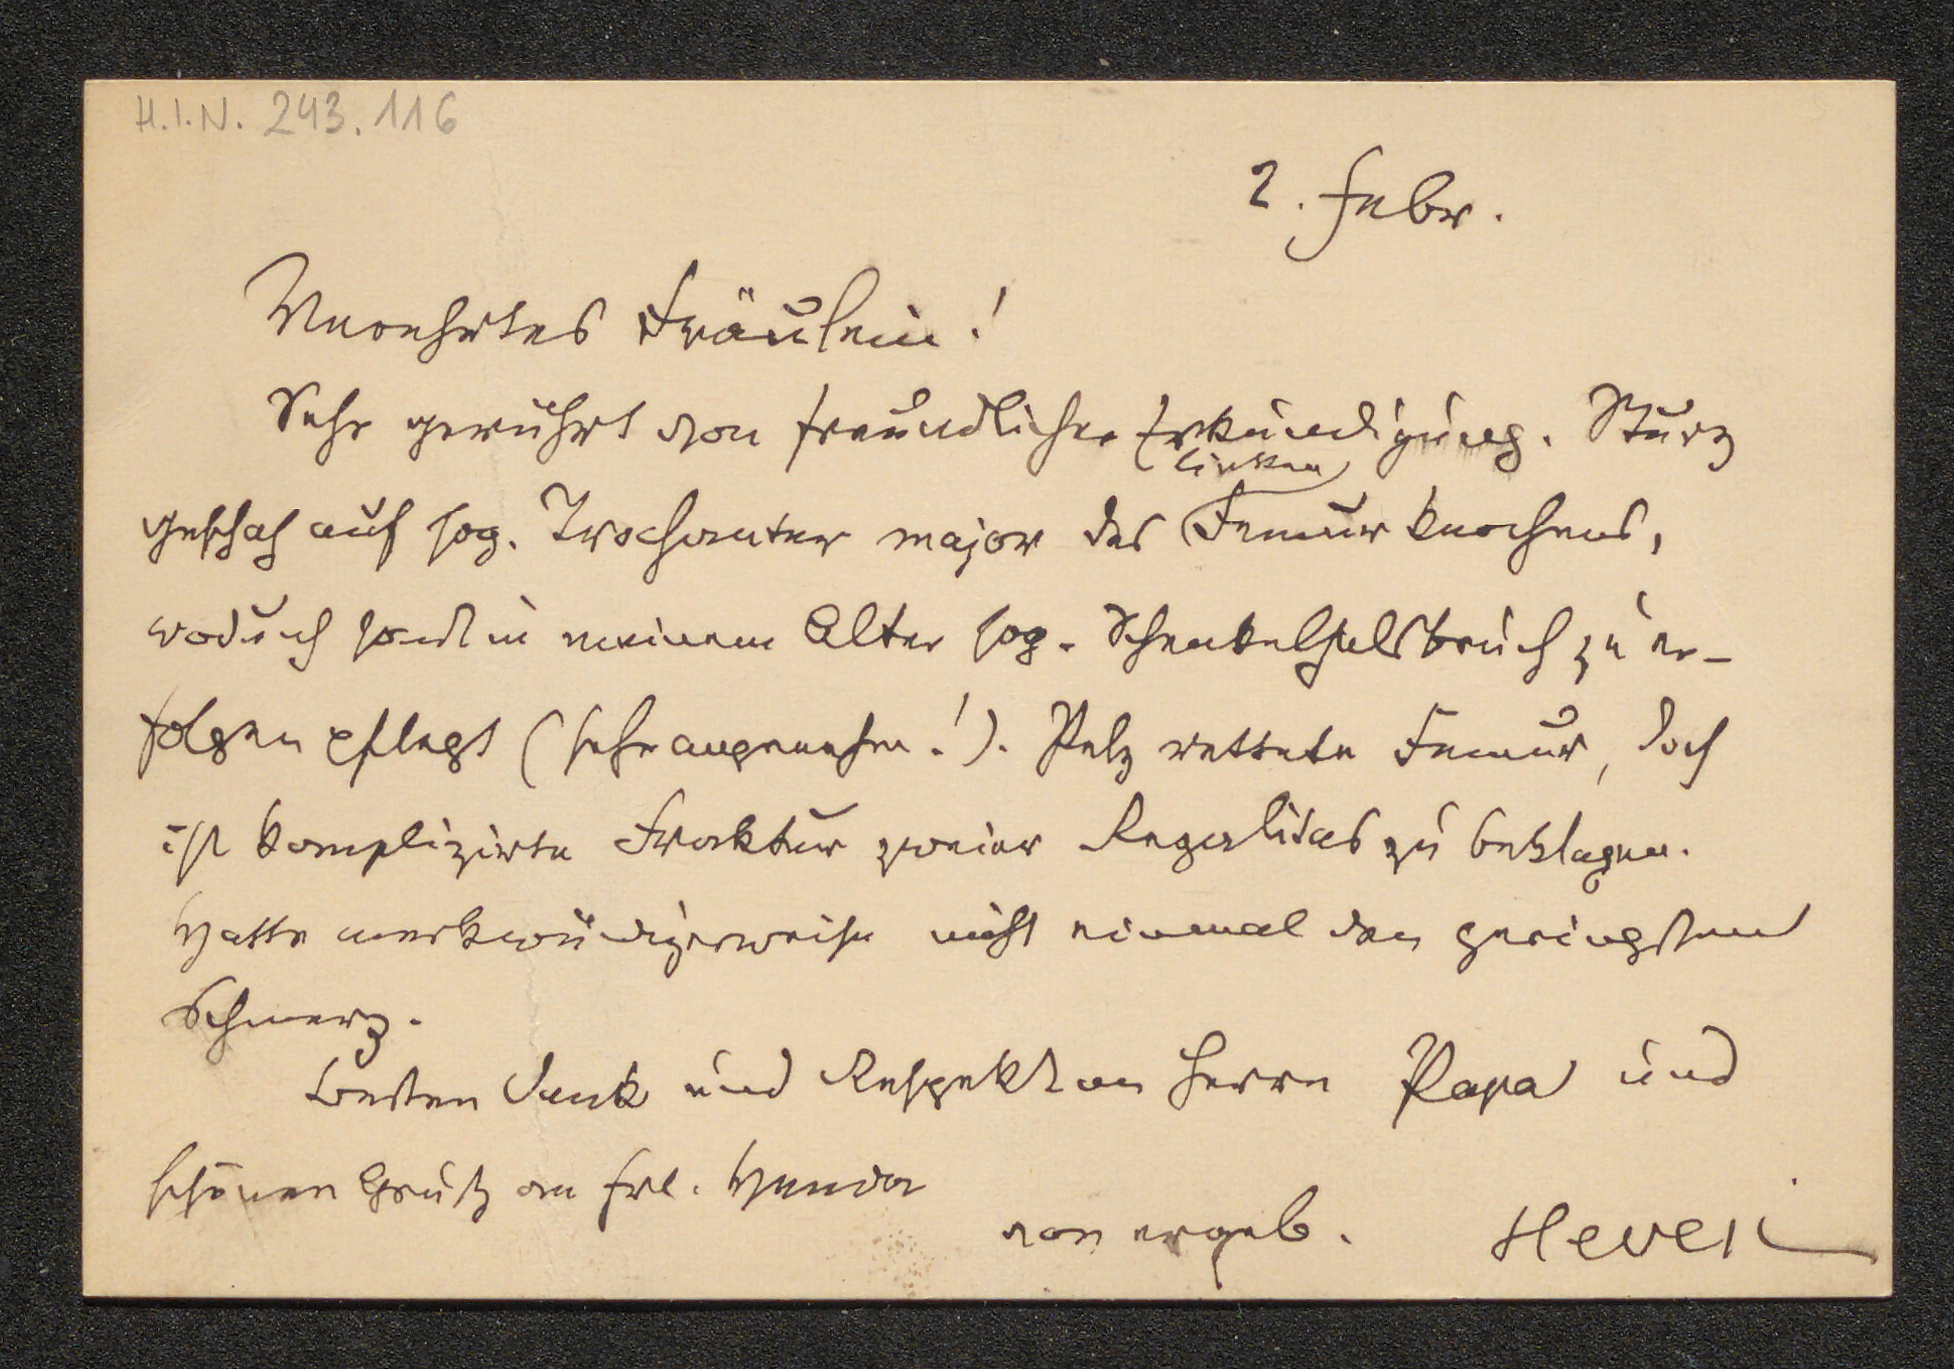 H.I.N. 243.116
2. Febr.
Verehrtes Fräulein!
Sehr gerührt von freundlicher Erkundigung. Sturz
linken
geschah auf sog. Trochanter major des Femurknochens,
wodurch sonst in meinem Alter sog. Schenkelhalsbruch zu er-
folgen pflegt (sehr angenehm!). Pelz rettete Femur, doch
ist komplizirte Fraktur zweier Regalitas zu beklagen.
Hatte merkwürdigerweise nicht einmal den geringsten
Schmerz.
Besten Dank und Respekt an Herrn Papa und
schönen Gruß an Frl.
von ergeb. Hevesi